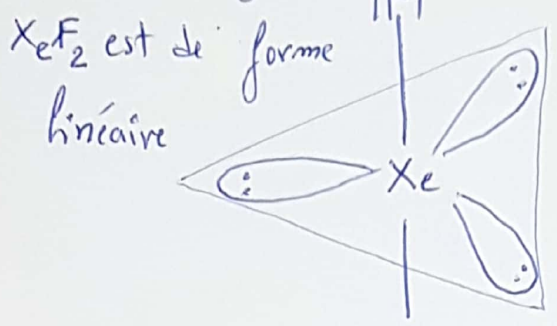 XeF2 est de forme
linéaire
Xe